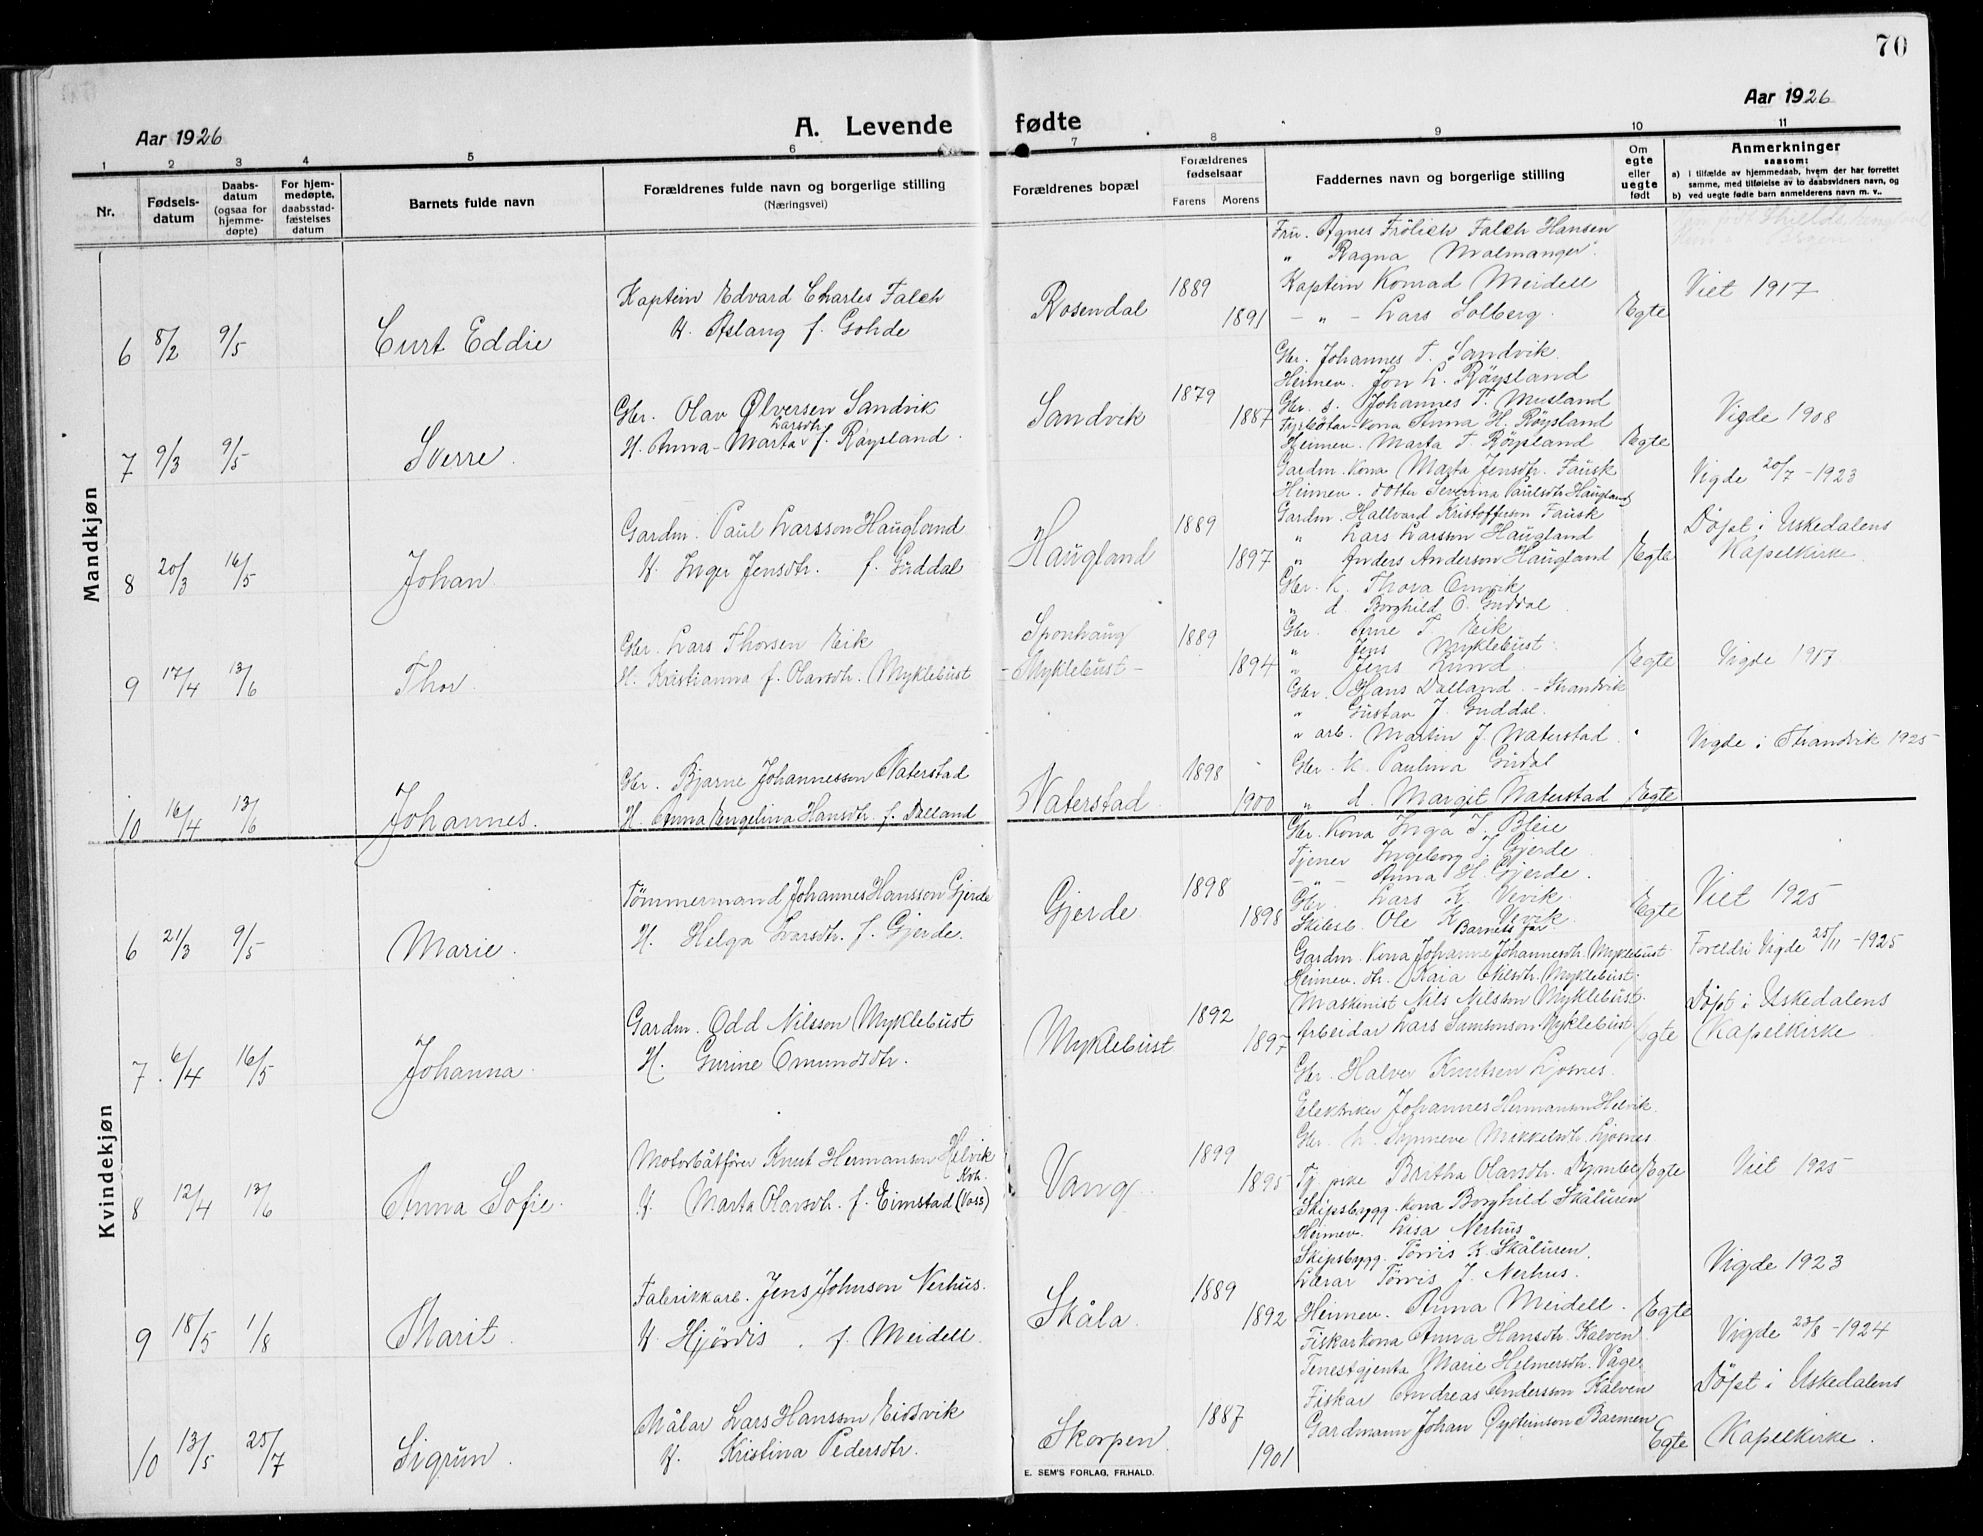 70
Aar 1926
A. Levende fødte
Aar 1926
1 2 3 4 5 6 7 8 9 10 11
Nr.
Fødsels-
datum
Daabs-
datum
(ogsaa for
hjemme-
døpte)
For hjem-
medøpte,
daabsstad-
fæstelses
datum
Barnets fulde navn
Forældrenes fulde navn og borgerlige stilling
(Næringsvei)
Forældrenes bopæl
Forældrenes
fødselsaar
Farens Morens
Faddernes navn og borgerlige stilling
Om
egte
eller
uegte
født
Anmerkninger
saasom:
a) i tilfælde av hjemmedaab, hvem der har forrettet
samme, med tilføielse av to daabsvidners navn, og
b) ved uegte fødte barn anmelderens navn m. v..
Mandkjøn
6 8/2 9/5 Curt Eddie
Kaptein Edvard Charles Falch
H. Aslaug f. Gohde
Rosendal 1889 1891
Fru. Agnes Frölich Falch Hansen
" Ragna Malmanger
Kaptein Konrad Meidell
- " - Lars Solberg.
Egte
Viet 1917
7 9/3 9/5 Sverre.
Gbr. Olav Ølversen Sandvik
Larsdtr.
H. Anna-Marta f. Røysland.
Sandvik 1879 1887
Gbr. Johannes T. Sandvik.
Heimev. Jon L. Røysland
Gbr. s. Johannes T. Musland
Fyrbøtar kona Anna H. Røysland
Heimev. Marta T. Røysland
Egte
Vigde 1908
8 20/3 16/5 Johan.
Gardm. Paul Larsson Haugland
H. Inger Jensdtr. f. Guddal
Haugland 1889 1897
Gardm. kona Marta Jensdtr. Fausk
Heimev. dotter Severina Paulsdtr Haugland
Gardm. Hallvard Kristoffersen Fausk
" Lars Larsson Haugland
" Anders Anderson Haugland
Egte
Vigde 20/7 - 1923
Döpt i Uskedalens
Kapelkirke
9 17/4 13/6 Thor.
Gbr. Lars Thorsen Eik
H. Kristianna f. Olavsdtr. Myklebust
Sponhaug
- Myklebust -
1889 1894
Gbr. K. Thora Omvik
" d. Borghild O. Guddal
Gbr. Arne T. Eik
" Jens Myklebust
" Jens Lund.
Egte
Vigde 1917
10 16/4 13/6 Johannes.
Gbr. Bjarne Johannessen Naterstad
H. Anna Engelina Hansdtr. f. Dalland
Naterstad 1898 1900
Gbr. Hans Dalland - Strandvik
" Gustav J. Guddal.
" arb. Martin J. Naterstad
Gbr. K. Paulina Gudal
" d. Margit Naterstad
Egte
Vigde i Strandvik 1925
Kvindekjøn
6 21/3 9/5 Marie.
Tømmermand Johannes Hansson Gjerde
H. Helga Larsdtr. f. Gjerde.
Gjerde 1898 1898
Gbr. Kona Inga J. Bleie
Tjener Ingeborg J. Gjerde
- " - Anna H. Gjerde.
Gbr. Lars K. Vevik.
Skibsb. Ole K. Vevik.
Egte
Viet 1925
7. 6/4 16/5 Johanna.
Gardm. Odd Nilsson Myklebust
H. Gurine Omundsdtr.
Myklebust 1892 1897
Barnets far
Gardm. Kona Johanne Johannesdtr. Myklebust
Heimev. dtr. Kaia Nilsdtr. Myklebust.
Maskinist Nils Nilsson Myklebust.
Arbeidar Lars Samsonson Myklebust
Egte
Foreldri Vigde 25/11 - 1925
Döpt i Uskedalens
Kapelkirke
8 12/4 13/6 Anna Sofie.
Motorbåtfører Knut Hermansen Helvik
Kvh.
H. Marta Olavsdtr. f. Eimstad (Voss)
Vang. 1899 1895
Gbr. Halvor Knutsen Ljosnes.
Elektriker Johannes Hermansen Helvik.
Gbr. h. Synneve Mikkelsdtr. Ljosnes
Tj. pike Bertha Olavsdtr.
Egte
Viet 1925
9 18/5 1/8 Marit.
Fabrikkarb. Jens Johnson Nerhus.
H Hjørdis. f. Meidell.
Skåla. 1889 1892
Skipsbygg. kona Borghild Skåluren
Heimev. Lisa Nerhus
Skipsbygg. Torvis K. Skåluren.
Lærar Torvis J. Nerhus.
Heimev. Anna Meidell.
Egte
Vigde 1923
10 13/5 25/7 Sigrun.
Målar Lars Hansson Eidsvik
H. Kristina Pedersdtr.
Skorpen. 1887 1901
Fiskarkona Anna Hansdtr. Kalven
Tenestgjenta Marie Helmersdtr. Våge
Fiskar Andreas Andersson Kalven
Gardmann Johan Øysteinson Barmen
Egte
Vigde 23/8 - 1924
Döpt i Uskedalens
Kapelkirke.
E. SEM'S FORLAG, FR.HALD.